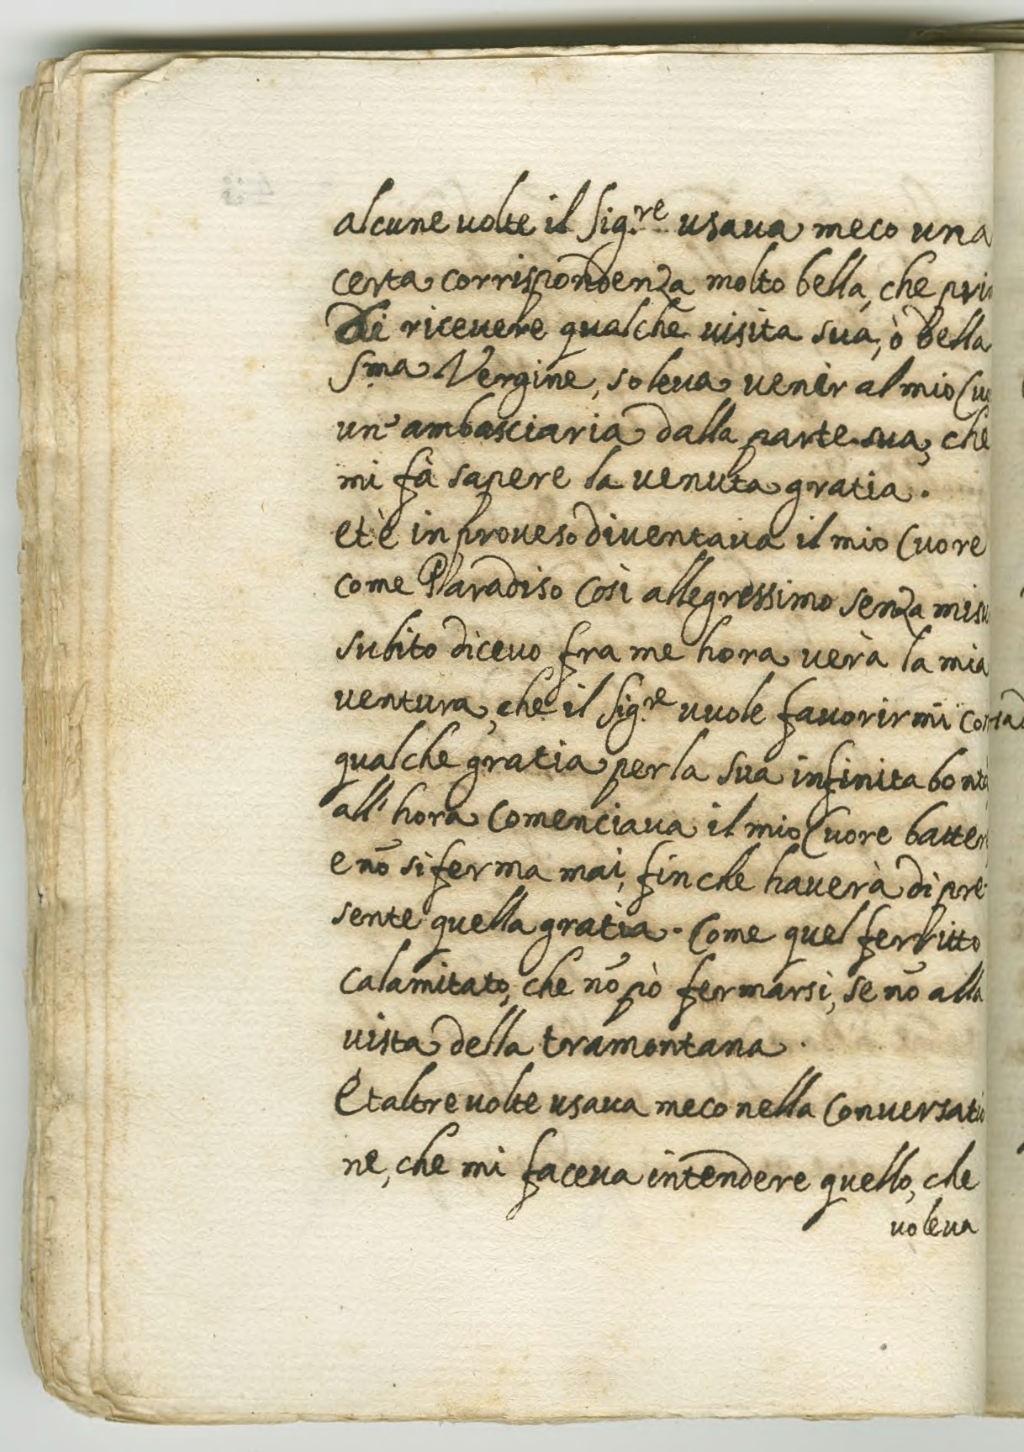 alcune uolte il Sig.re usaua meco una
certa corrispondenza molto bella, che pri
di riceuere qualche uisita sua, ò della
S.ma Vergine, soleua uenir al mio Cu
un' ambasciaria dalla parte sua, che
mi fà sapere la uenuta gratia.
et è in proueso diuentaua il mio Cuore
come Paradiso Così allegressimo senza misu
subito diceuo fra me hora uerà la mia
uentura, che il Sig.re uuole fauorirmi con
qualche gratia per la sua infinita bontà
all' hora Comenciaua il mio Cuore batter
e nõ si ferma mai, fin che hauerà di pre
sente quella gratia. Come quel ferritto
Calamitato, che nõ pò fermarsi, se nõ alla
uista della tramontana.
Et altre uolte usaua meco nella Conuersati
ne, che mi faceua intendere quello, che
uoleua